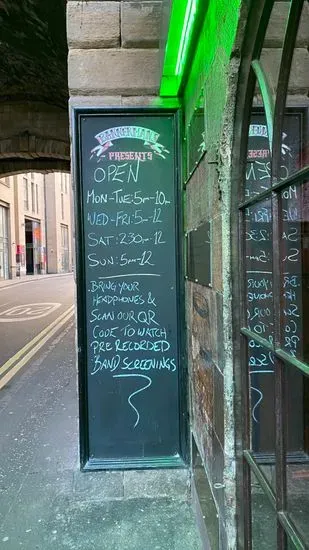 BANNERMAN'S
PRESENTS
OPEN
MON-TUE: 5PM-10PM
WED-FRI: 5PM-12
SAT: 2.30PM-12
SUN: 5PM-12
BRING YOUR
HEADPHONES &
SCAN OUR QR
CODE TO WATCH
PRE RECORDED
BAND SCREENINGS
20